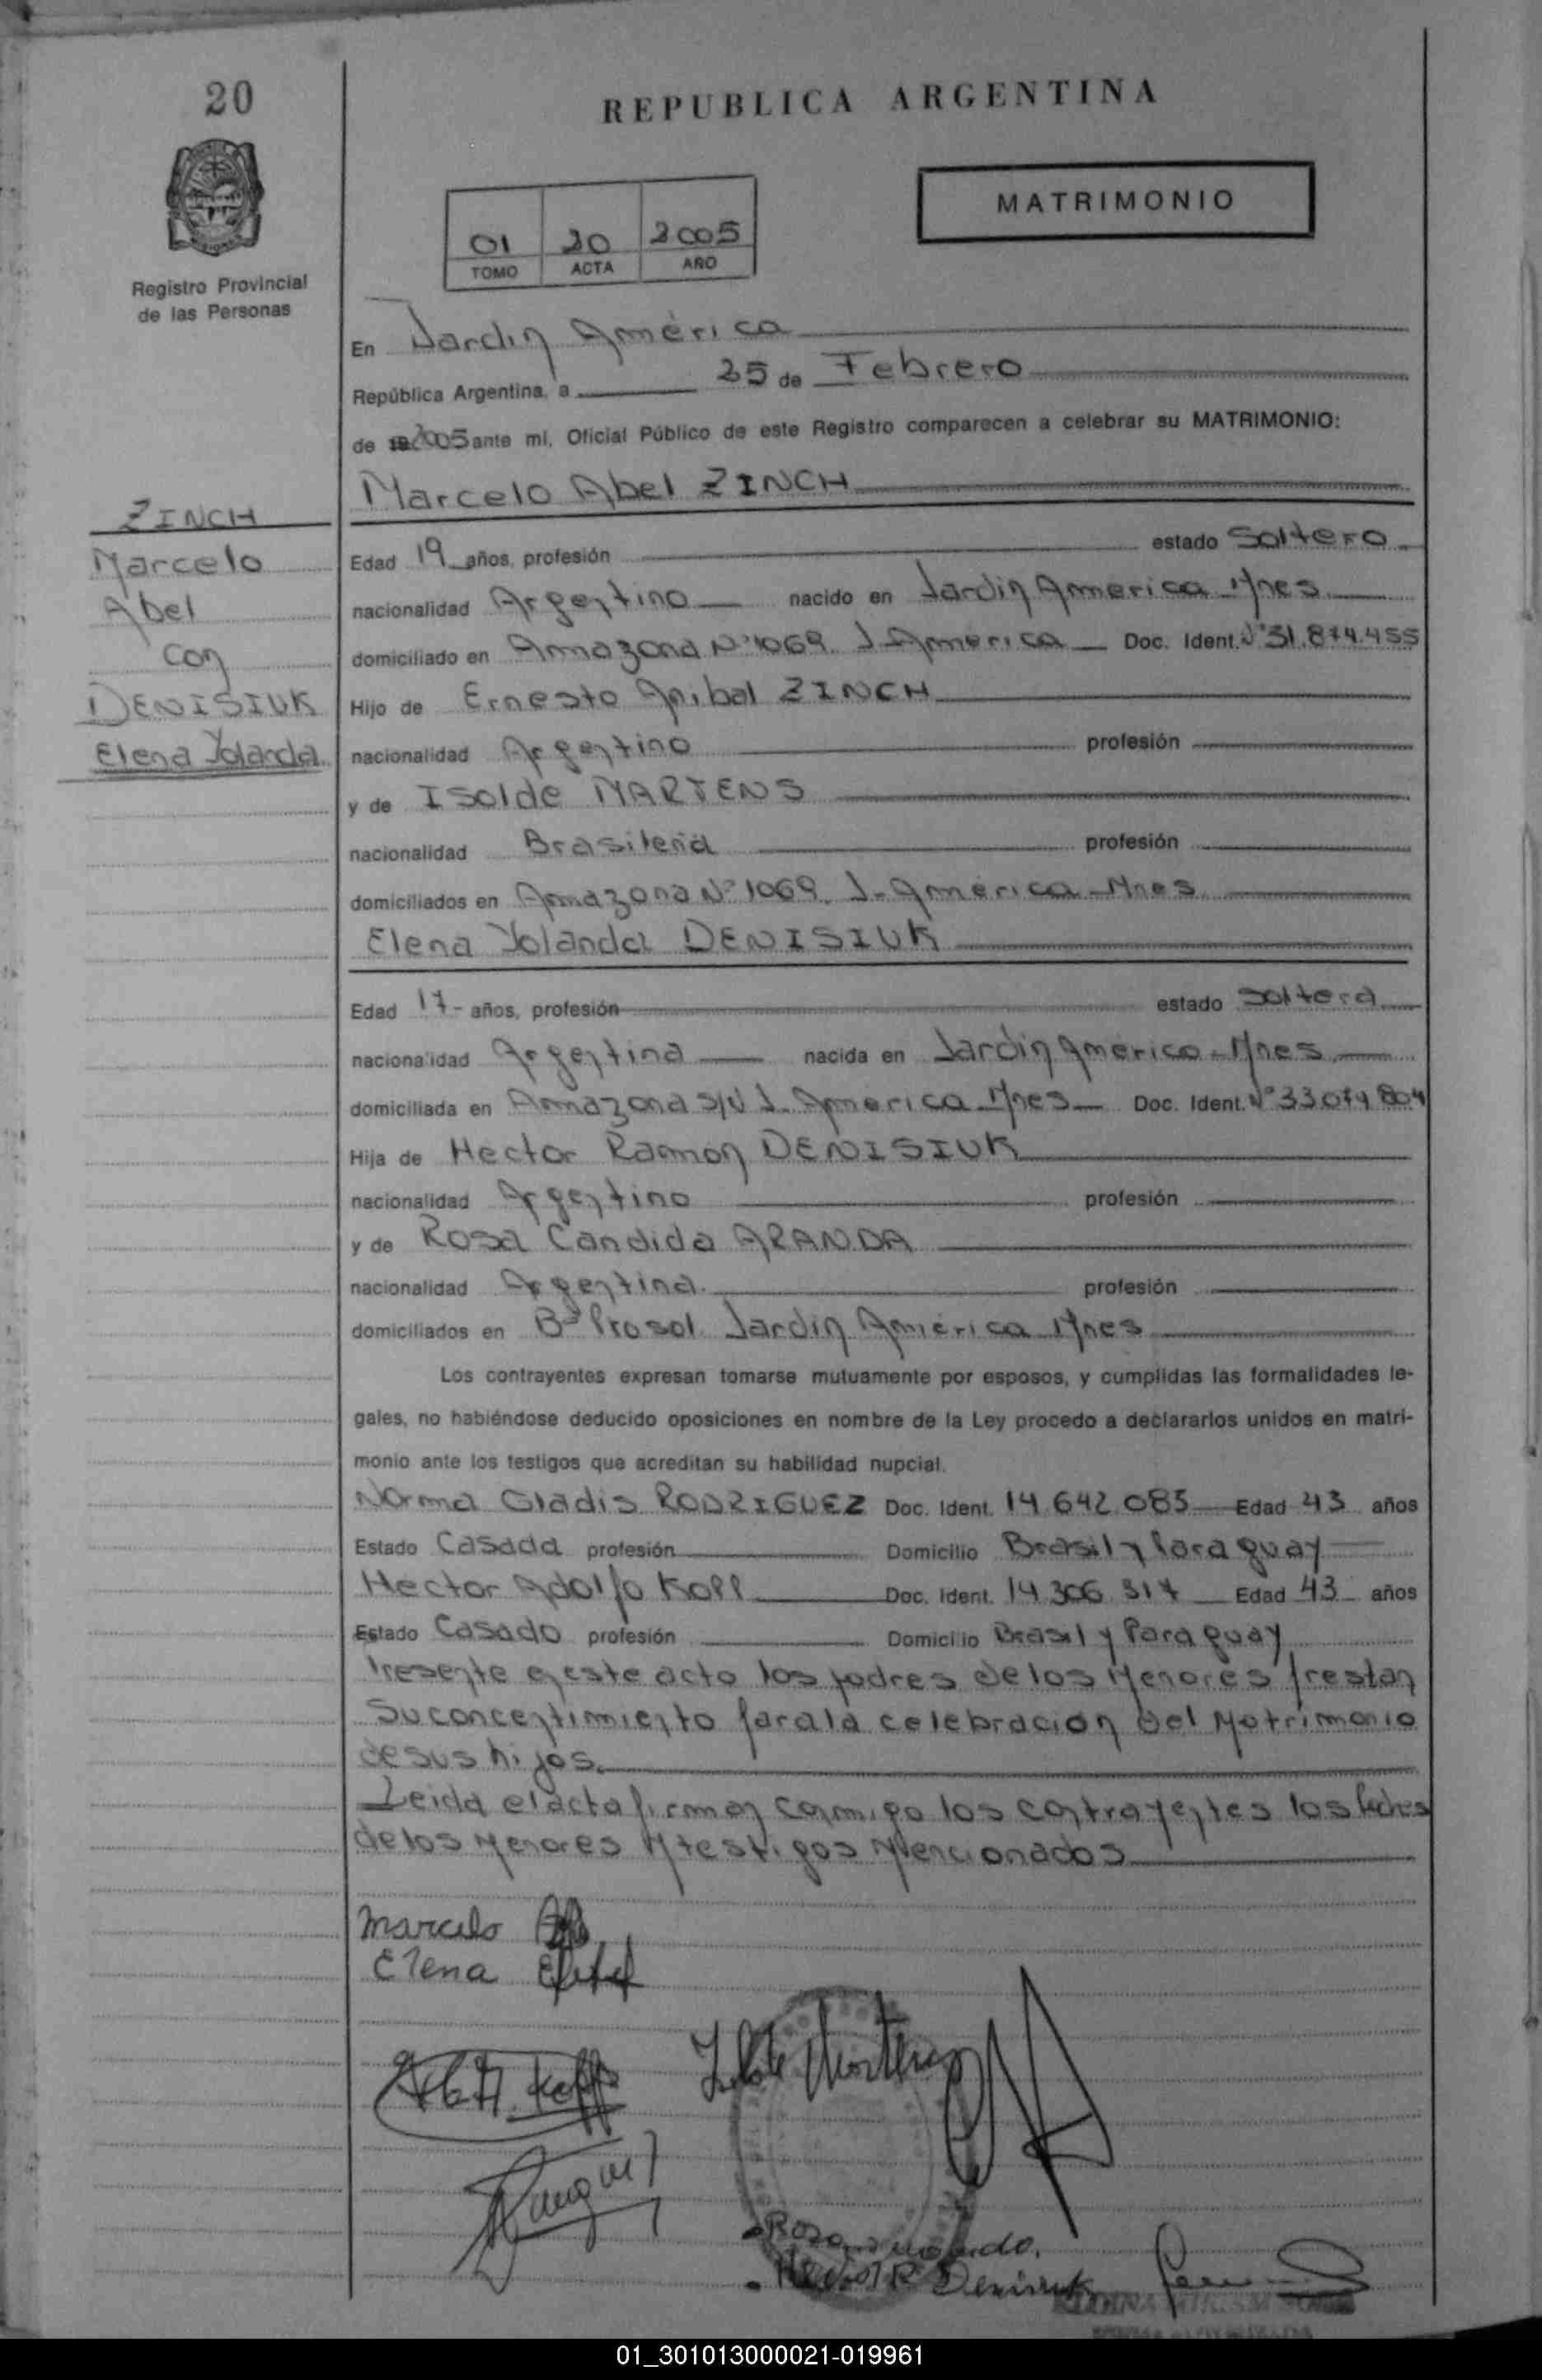 20
REPUBLICA ARGENTINA
MATRIMONIO
01 20 2005
TOMO ACTA AÑO
Registro Provincial
de las Personas
En Jardin América
República Argentina, a 25 de Febrero
de 2005 ante mí, Oficial Público de este Registro comparecen a celebrar su MATRIMONIO:
Marcelo Abel ZINCH
ZINCH
Marcelo
Abel
con
DENISIUK
Elena Yolanda
Edad 19 años, profesión estado Soltero
nacionalidad Argentino nacido en Jardin America Mnes
domiciliado en Amazona Nº 1069 J. America Doc. Ident. Nº 31.874.455
Hijo de Ernesto Anibal ZINCH
nacionalidad Argentino profesión
y de Isolde MARTENS
nacionalidad Brasileña profesión
domiciliados en Amazona Nº 1069. J. América - Mnes
Elena Yolanda DENISIUK
Edad 17 años, profesión estado Soltera
nacionalidad Argentina nacida en Jardin America - Mnes
domiciliada en Amazona S/N J. America Mnes Doc. Ident. Nº 33074804
Hija de Hector Ramon DENISIUK
nacionalidad Argentino profesión
y de Rosa Candida ARANDA
nacionalidad Argentina profesión
domiciliados en Bº Prosol Jardin América Mnes
Los contrayentes expresan tomarse mutuamente por esposos, y cumplidas las formalidades le-
gales, no habiéndose deducido oposiciones en nombre de la Ley procedo a declararlos unidos en matri-
monio ante los testigos que acreditan su habilidad nupcial.
Norma Gladis RODRIGUEZ Doc. Ident. 14.642.085 Edad 43 años
Estado Casada profesión Domicilio Brasil y Paraguay
Hector Adolfo Kopp Doc. Ident. 14.306.317 Edad 43 años
Estado Casado profesión Domicilio Brasil y Paraguay
Presente en este acto los padres de los Menores prestan
su concentimiento para la celebración del Matrimonio
de sus hijos.
Leida el acta firman conmigo los contrayentes los Padres
de los Menores y testigos Mencionados
Marcelo
Elena
Isolde Martens
Hector R Denisiuk
01_301013000021-019961